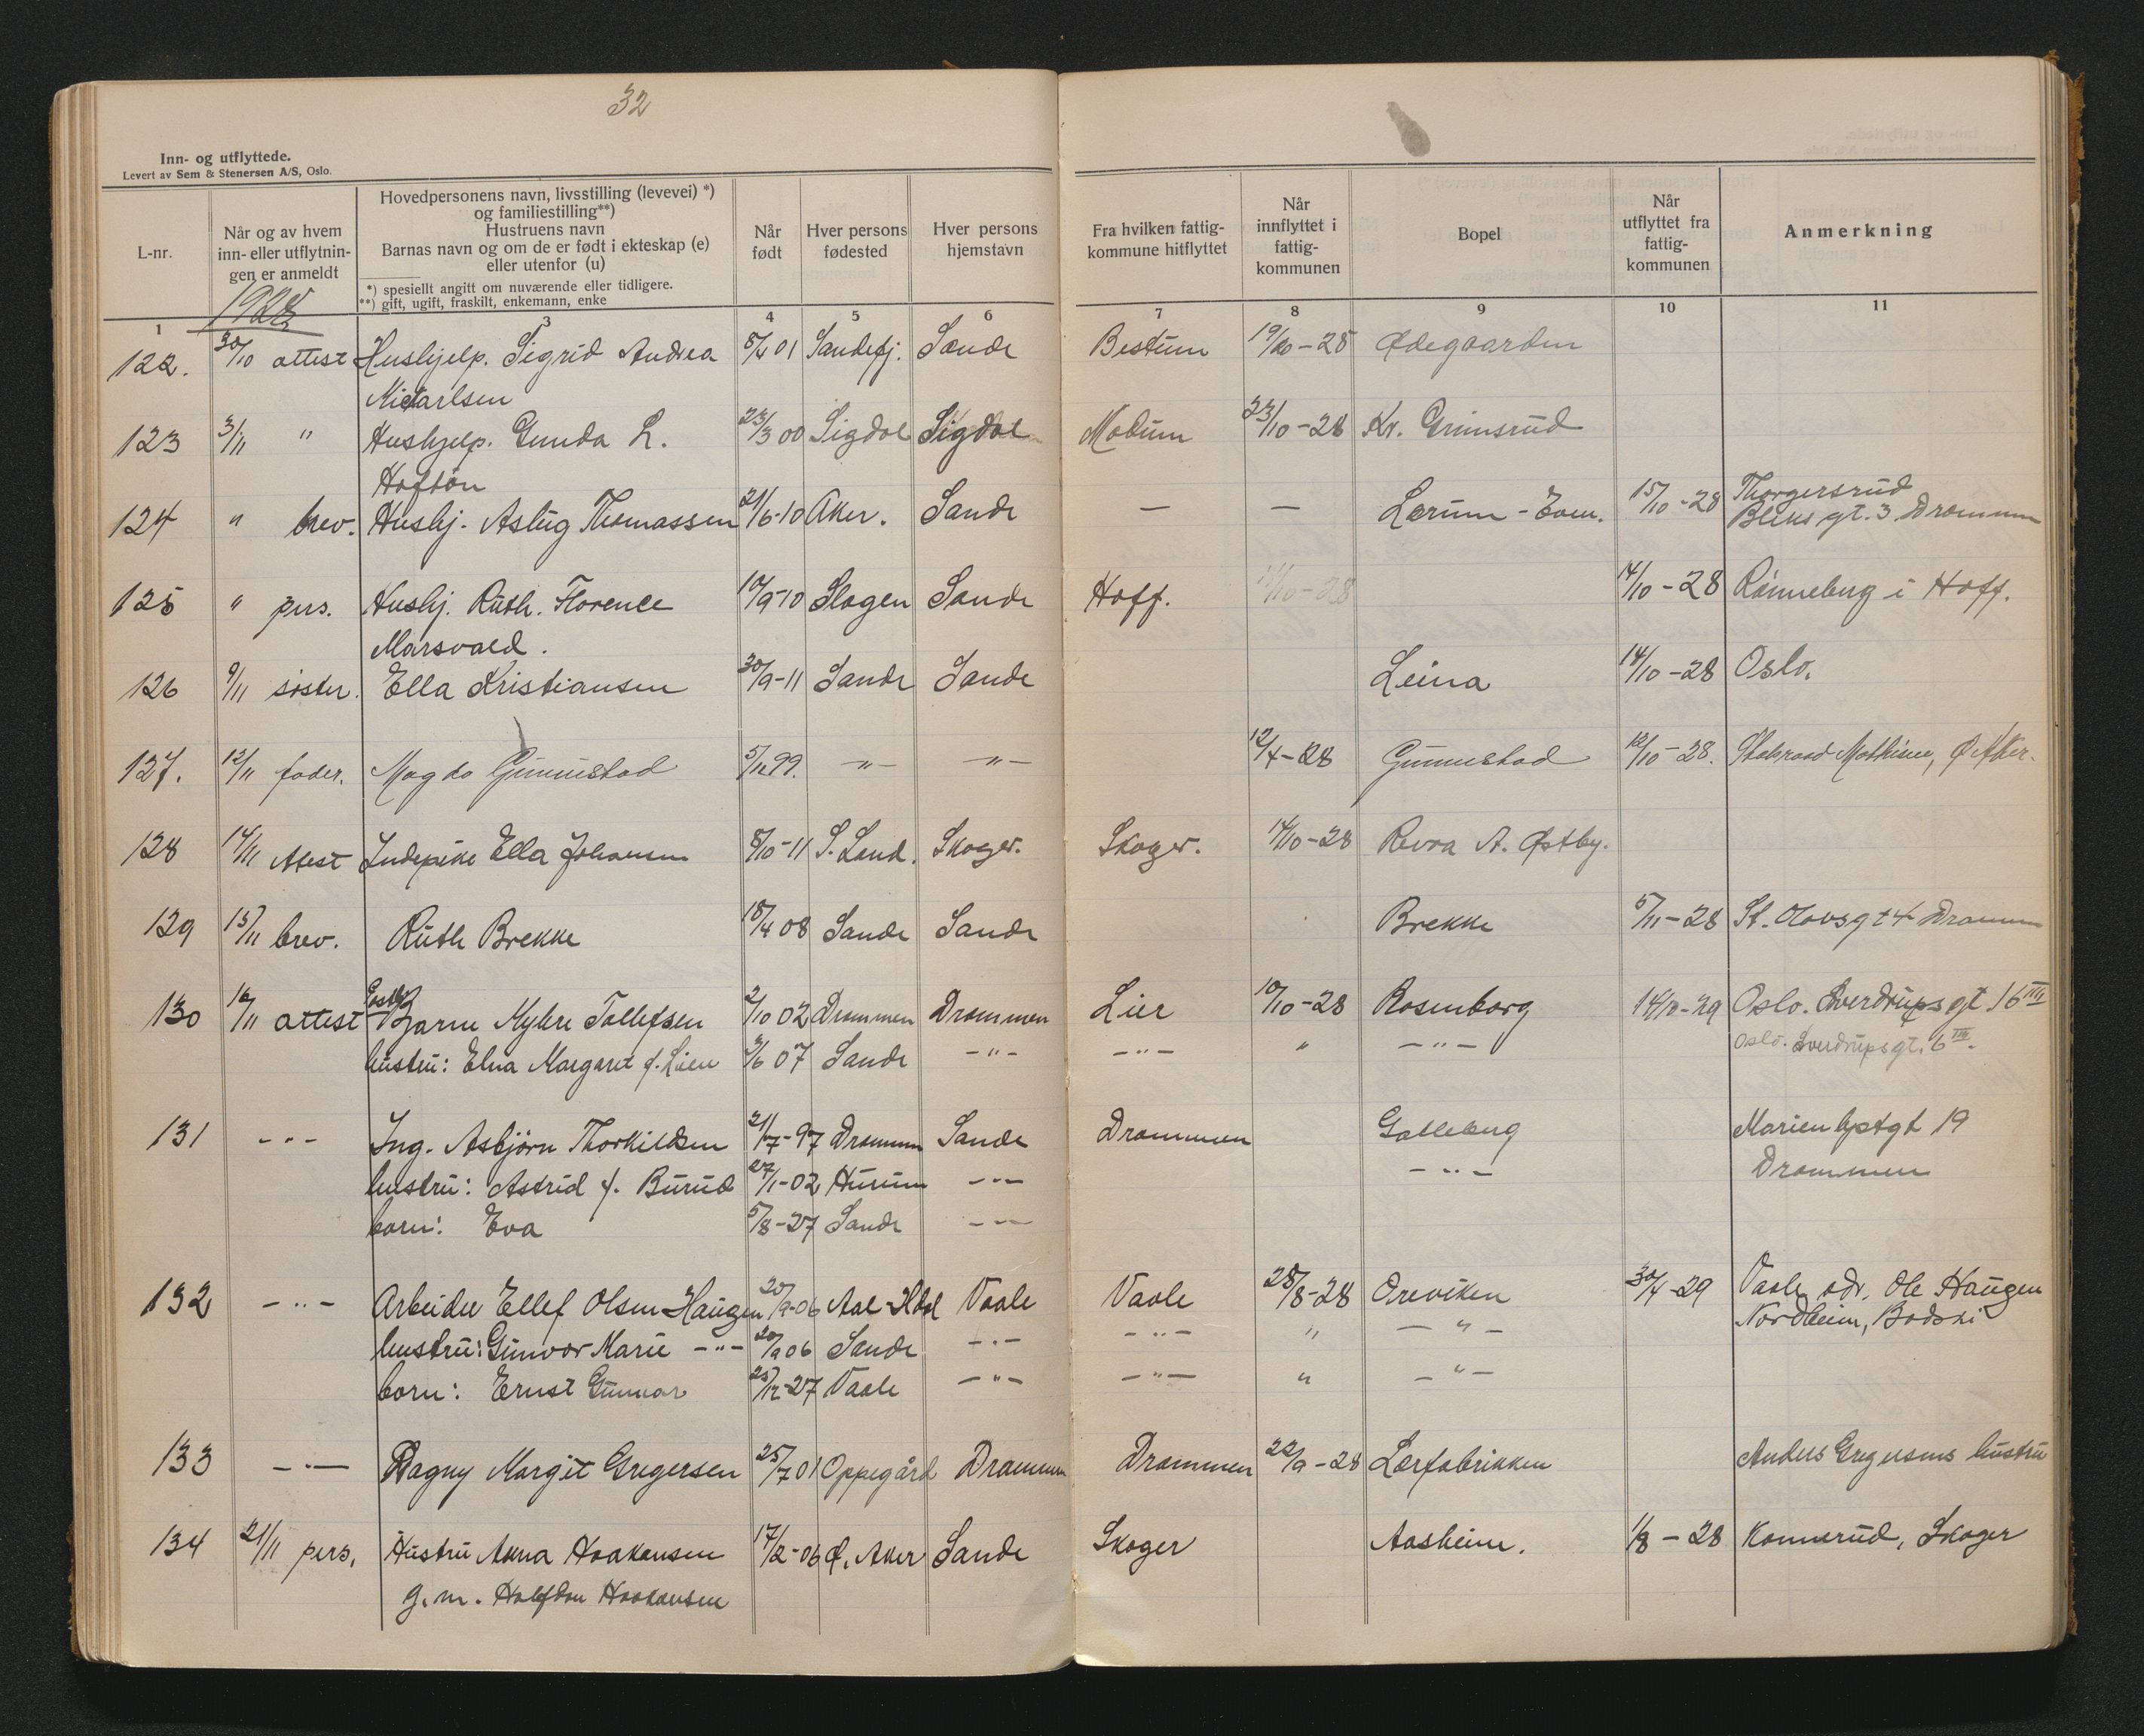 32
Inn- og utflyttede.
Levert av Sem & Stenersen A/S, Oslo.
L-nr.
Når og av hvem inn- eller utflytnin- gen er anmeldt
Hovedpersonens navn, livsstilling (levevei) *)
og familiestilling**)
Hustruens navn
Barnas navn og om de er født i ekteskap (e)
eller utenfor (u)
*) spesiellt angitt om nuværende eller tidligere.
**) gift, ugift, fraskilt, enkemann, enke
Når født
Hver persons fødested
Hver persons hjemstavn
Fra hvilken fattig- kommune hitflyttet
Når innflyttet i fattig- kommunen
Bopel
Når utflyttet fra fattig- kommunen
Anmerkning
1928
1 3 4 5 6 7 8 9 10 11
122. 30/10 attest Hushjelp. Sigrid Andrea 5/4 01 Sandefj. Sande Bestum 19/10-28 Ødegaarden
123 3/11 " Hushjelp. Gunda L. 23/3 00 Sigdal Sigdal Modum 23/10-28 Kr. Grimsrud
124 " brev. Hushj. Aslug Thomassen 21/6-10 Aker. Sande — — Lerum - Even. 15/10-28 Thorgersrud
Bleks gt. 3 Drammen
125 " pers. Hushj. Ruth. Florence 10/9-10 Slagen Sande Hoff. 14/10-28 14/10-28 Rønneberg i Hoff.
Marsvald.
126 9/11 søster. Ella Kristiansen 30/9-11 Sande Sande Leina 14/10-28 Oslo.
127. 12/11 fader. Magda Gunnestad 5/12 99. -"- -"- 12/4-28 Gunnestad 12/10-28. Mathisen, Ø Aker.
128 14/11 Atest Indepike Ella Johansen 8/10-11 S. Land. Skoger. Skoger. 14/10-28 Revaa A. Østby.
129 15/11 brev. Ruth Brekke 18/4 08 Sande Sande Brekke 5/11-28 St. Olavsgt 4 Drammen
130 16/11 attest Bjarne Myhre Tollefsen 2/10 02 Drammen Drammen Lier 10/10-28 Rosenborg 14/10-29 Oslo. Sverdrupsgt. 16 III
hustru: Elna Margaret f. Lien 3/6 07 Sande -"- -"- " -"- Oslo. Sverdrupsgt. 6 III.
131 -"- Ing. Asbjörn Thorkildsen 21/7-97 Drammen Sande Drammen Galleberg Marienlystgt 19
hustru: Astrid f. Burud 27/1-02 Hurum -"- -"- Drammen
barn: Eva 5/8-27 Sande -"-
132 -"- Arbeider Ellef Olsen Haugen 20/9-06 Aal-Hdal Vaale Vaale 28/8-28 Oreviken 30/4-29 Vaale adr. Ole Haugen
hustru: Gunvor Marie -"- 20/9 06 Sande -"- -"- " -"- Nordheim, Bodski
barn: Ernst Gunnar 25/12-27 Vaale -"- -"- " -"-
133 -"- Dagny Margit Gregersen 25/7 01 Oppegård Drammen Drammen 22/9-28 Lærfabrikken Anders Gregersens hustru
134 21/11 pers. Hustru Anna Haakansen 17/2-06 Ø. Aker Sande Skoger Aasheim. 1/8-28 Konnerud, Skoger
g.m. Halfdan Haakansen